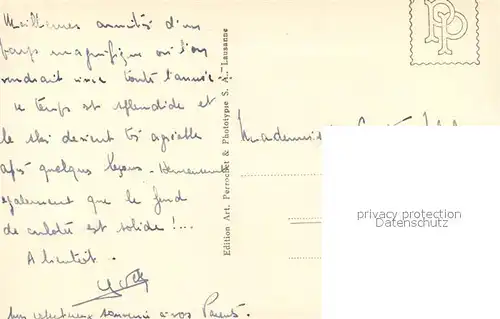 Meilleures amitiés d'un
pays magnifique où l'on
voudrait vivre toute l'année
le temps est splendide et
le ski devient très agréable
après quelques leçons. Heureusement
également que le fond
de culotte est solide !...
A bientôt.
Mon respectueux souvenir à vos Parents.
Edition Art. Perrochet & Phototypie S. A., Lausanne
PP
Mademoiselle
privacy protection
Datenschutz